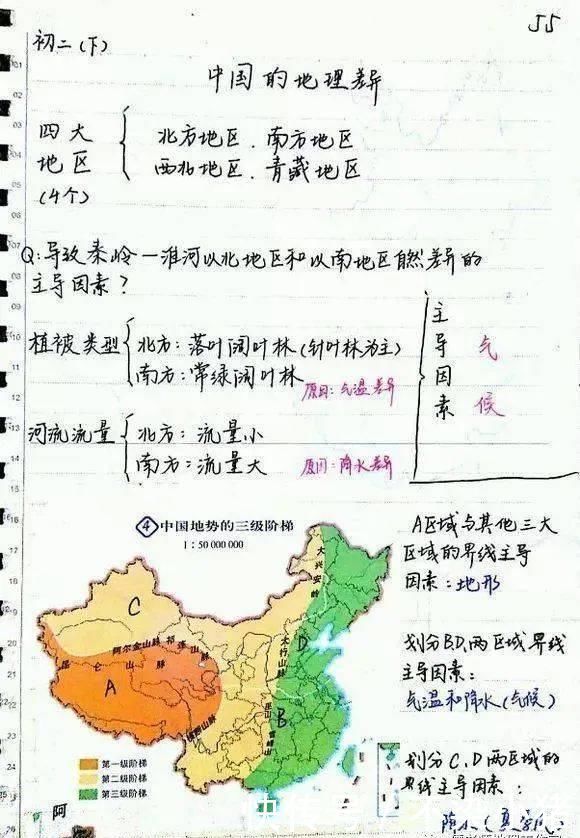 55
初二(下)
中国的地理差异
四大
地区
(4个)
北方地区、南方地区
西北地区、青藏地区
Q:导致秦岭—淮河以北地区和以南地区自然差异的
主导因素?
植被类型
北方:落叶阔叶林(针叶林为主)
南方:常绿阔叶林
原因:气温差异
主导因素
气候
河流流量
北方:流量小
南方:流量大
原因:降水差异
④中国地势的三级阶梯
1:50 000 000
A区域与其他三大
区域的界线主导
因素:地形
划分BD两区域界线
主导因素:
气温和降水(气候)
划分C、D两区域的
界线主导因素:
降水
大兴安岭
太行山脉
巫山
雪峰山
阿尔金山脉
祁连山脉
昆仑山脉
横断山脉
A
B
C
D
第一级阶梯
第二级阶梯
第三级阶梯
阿